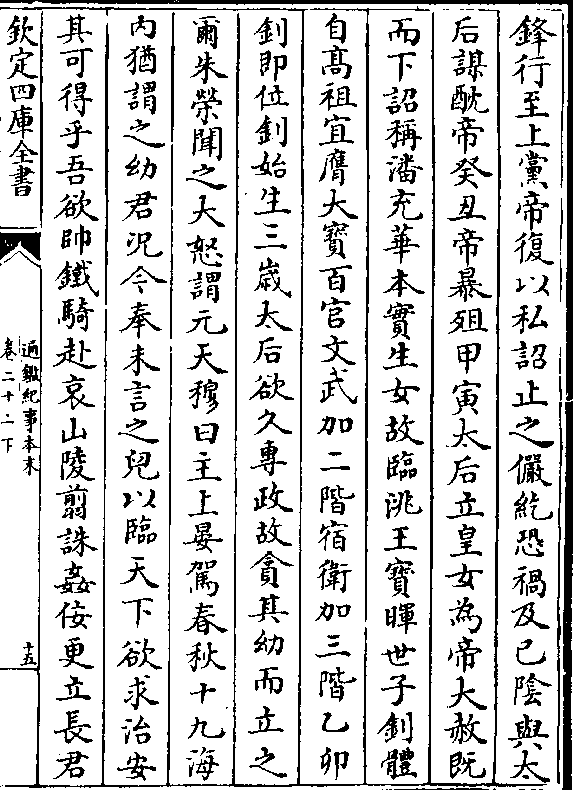 鋒行至上黨帝復以私詔止之儼紇恐禍及已陰與太
后謀酖帝癸丑帝暴殂甲寅太后立皇女為帝大赦既
而下詔稱潘充華本實生女故臨洮王寳暉世子釗體
自髙祖宜膺大寳百官文武加二階宿衛加三階乙卯
釗即位釗始生三嵗太后欲久專政故貪其幼而立之
爾朱榮聞之大怒謂元天穆曰主上晏駕春秋十九海
内猶謂之幼君况今奉未言之兒以臨天下欲求治安
其可得乎吾欲帥鐵騎赴哀山陵翦誅姦佞更立長君
欽定四庫全書
通鑑紀事本末
卷二十二下
十五